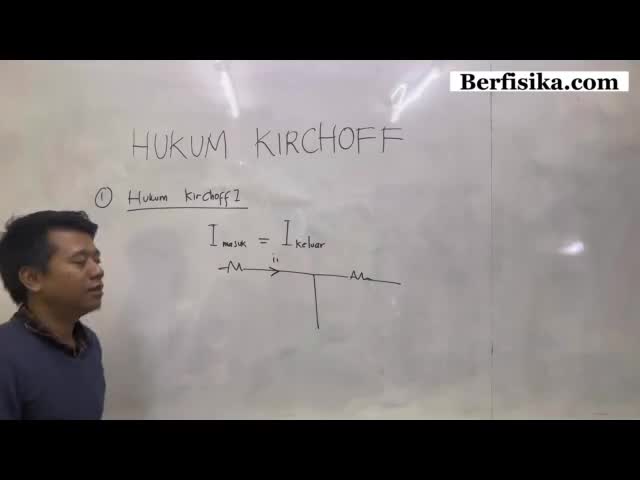 Berfisika.com
HUKUM KIRCHOFF
① Hukum Kirchoff I
I masuk = I keluar
i₁